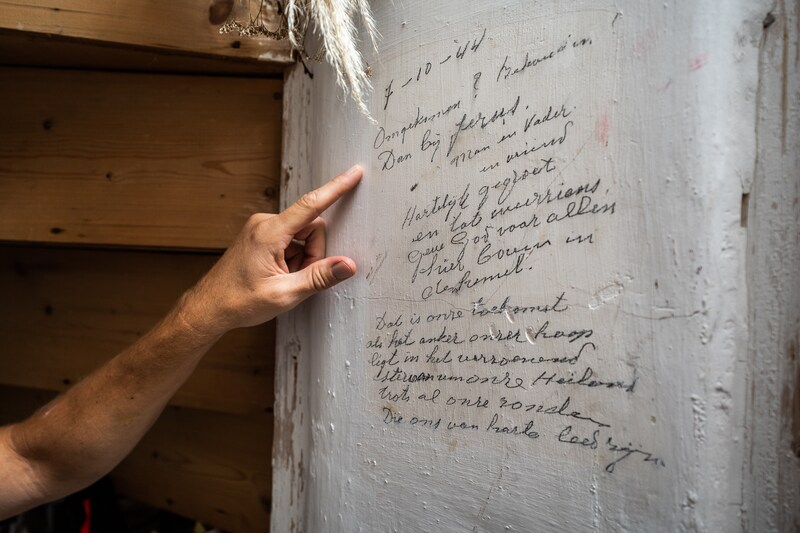 7-10-44
Omgekomen
Dan bij Jezus.
man en Vader.
en vriend
Hartelijk gegroet
en tot weerziens.
Geve God voor allen
hier boven in
den hemel.
Dat is onze toekomst
als het anker onzer hoop
ligt in het verzoenend
sterven van onze Heiland
trots al onze zonden
Die ons van harte leed zijn.